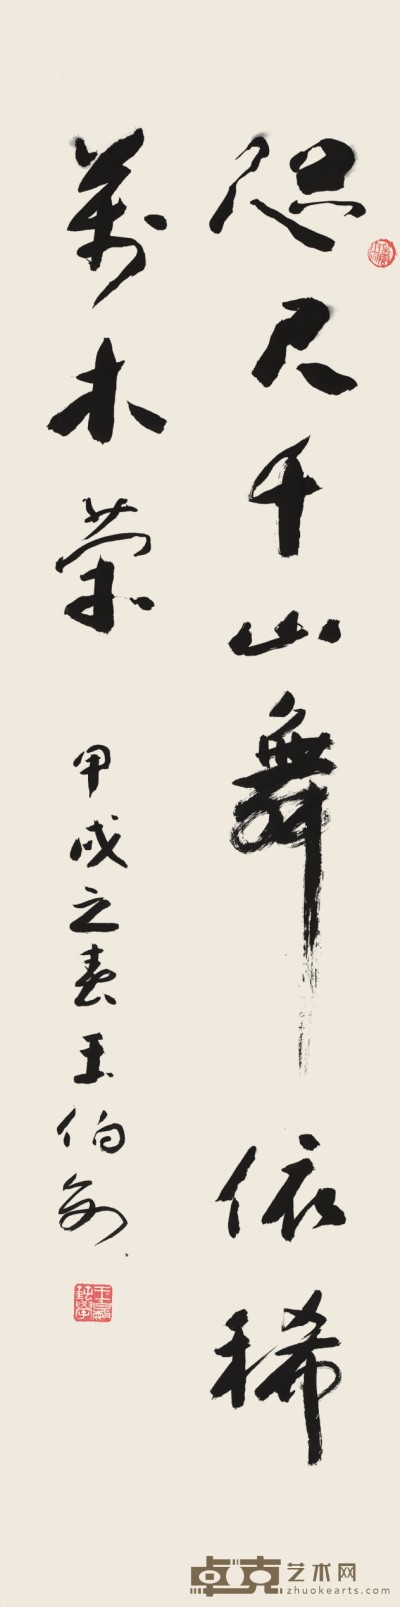 咫尺千山舞依稀
萬木榮
甲戌之春王伯敏
卓克艺术网
zhuokearts.com